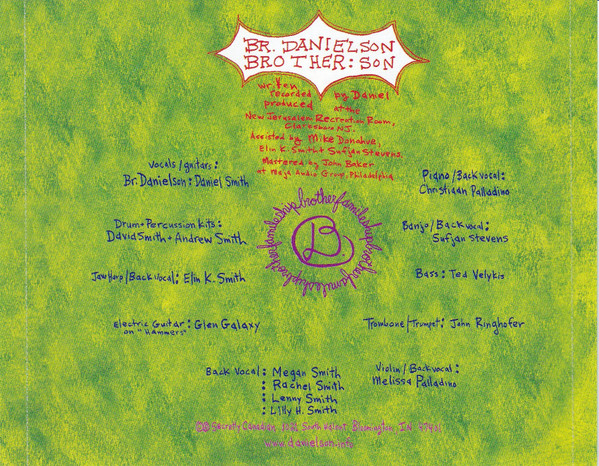 BR. DANIELSON
BROTHER: SON
written
recorded
produced
by Daniel
at the
New Jerusalem Recreation Room,
Clarksboro N.J.
Assisted by Mike Donahue,
Elin K. Smith & Sufjan Stevens.
Mastered by John Baker
at Maja Audio Group. Philadelphia
Vocals/guitars:
Br. Danielson: Daniel Smith
Piano/Back vocal:
Christiaan Palladino
Drum + Percussion Kits:
David Smith + Andrew Smith
Banjo/Back vocal:
Sufjan Stevens
brotherfamileshipbrotherfamileshipbrotherfamileship
B
Jaw Harp/Back vocal: Elin K. Smith
Bass: Ted Velykis
Electric Guitar: Glen Galaxy
on "Hammers"
Trombone/Trumpet: John Ringhofer
Back Vocal: Megan Smith
: Rachel Smith
: Lenny Smith
: Lilly H. Smith
Violin/Backvocal:
Melissa Palladino
©℗ Secretly Canadian, 1021 South Walnut, Bloomington, IN 47401
www.danielson.info